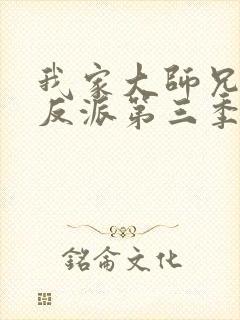 我家大師兄
反派第三季
銘侖文化